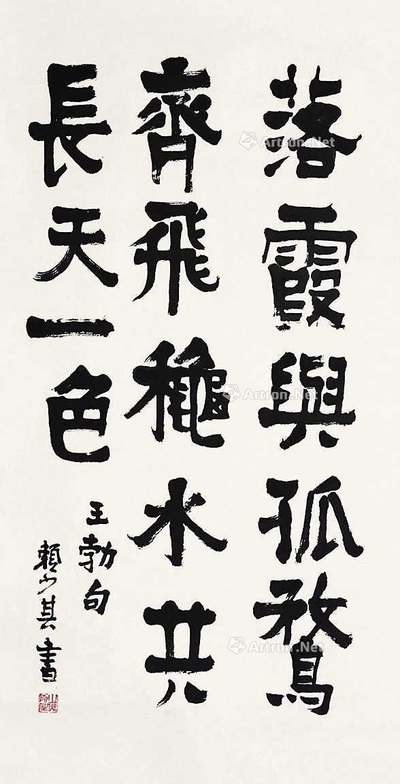 落霞與孤鶩
齊飛龝水共
長天一色
王勃句
賴少其書
Artron.Net
Artron.Net
Artron.Net